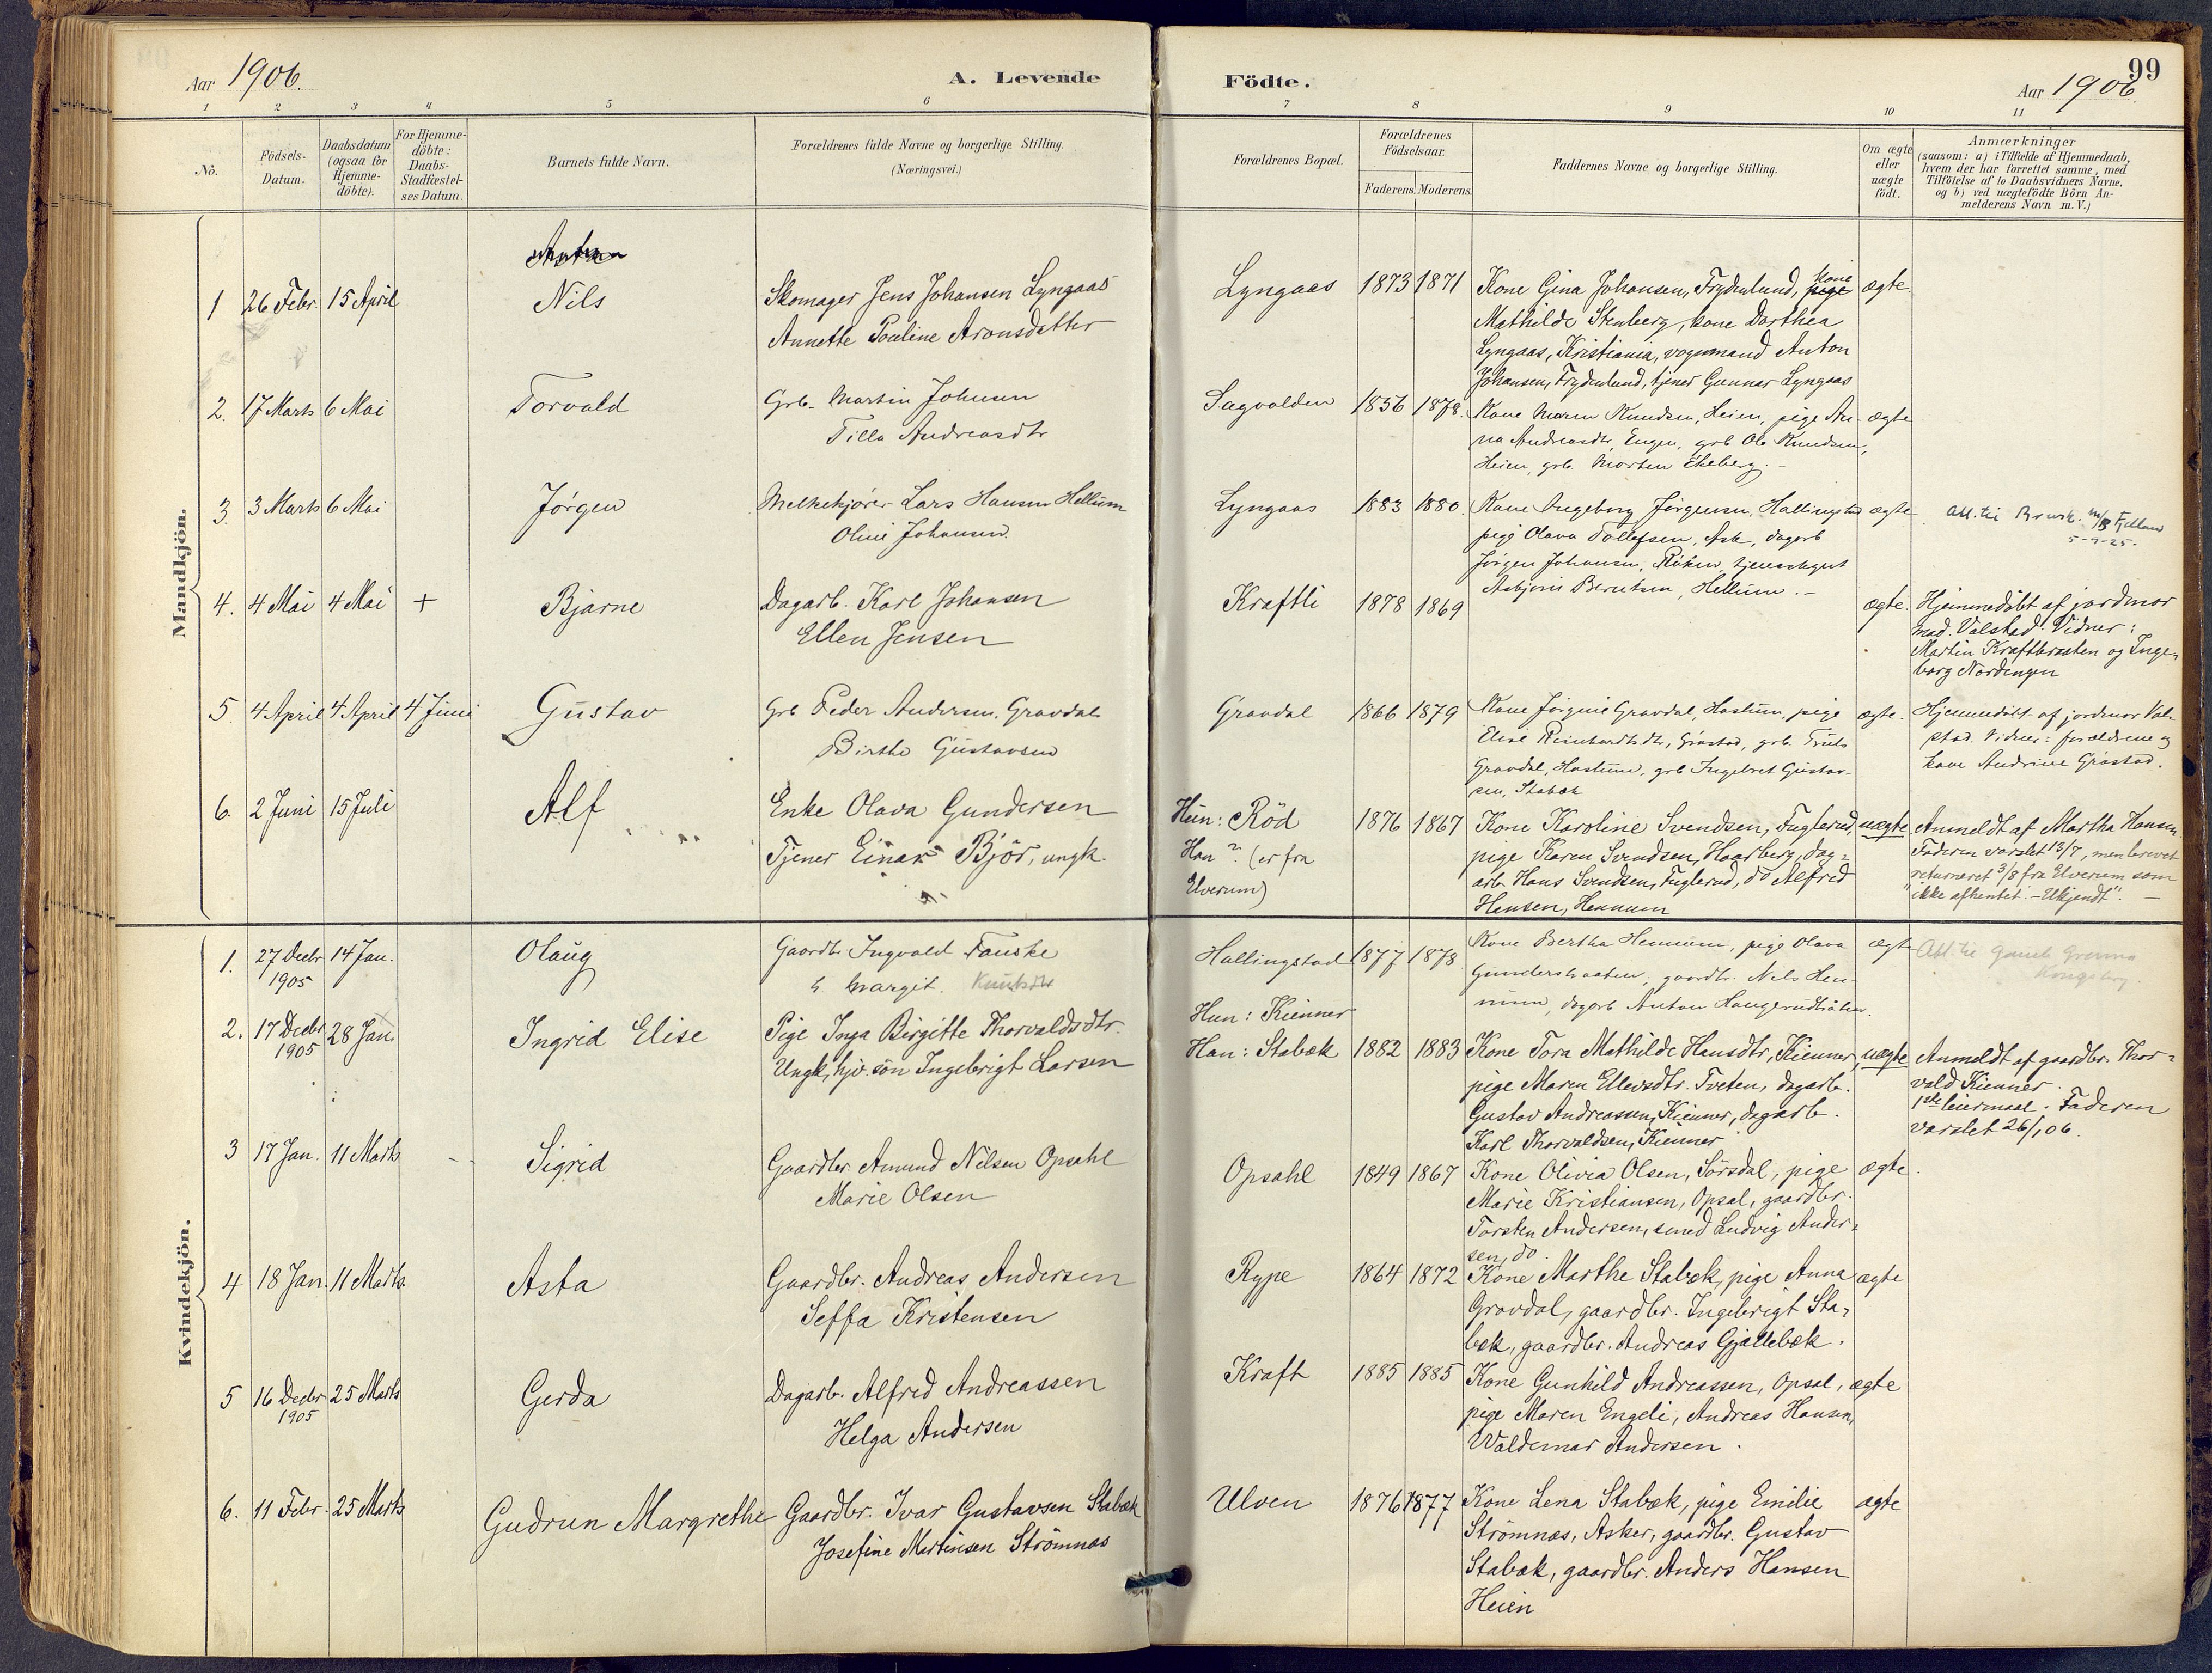 Aar 1906.
A. Levende
Födte.
99
Aar 1906.
1 2 3 4 5 6 7 8 9 10 11
No.
Födsels-Datum.
Daabsdatum (ogsaa for Hjemme-döbte).
For Hjemme-döbte: Daabs-Stadfæstel-ses Datum.
Barnets fulde Navn.
Forældrenes fulde Navne og borgerlige Stilling.
(Næringsvei.)
Forældrenes Bopæl.
Forældrenes Födselsaar.
Faderens. Moderens.
Faddernes Navne og borgerlige Stilling.
Om ægte eller uægte födt.
Anmærkninger
(saasom: a) i Tilfælde af Hjemmedaab,
hvem der har forrettet samme, med
Tilföielse af to Daabsvidners Navne.
og b) ved uægtefödte Börn An-
melderens Navn m. V.)
Mandkjön.
1 26 Febr. 15 April Nils Skomager Jens Johansen Lyngaas Lyngaas 1873 1871 Kone Gina Johansen, Frydenlund, kone ægte
Annette Pauline Aronsdatter Mathilde Stenberg, kone Dorthea
Lyngaas, Kristiania, vognmand Anton
Johansen, Frydenlund, tjener Gunnar Lyngaas
2. 17 Marts 6 Mai Torvald Grb. Martin Johnsen Sagvolden 1856 1878. Kone Maren Knudsen, Heien, pige An- ægte
Tilla Andreasdtr na Andreasdtr, Engen, grb Ole Knudsen,
Heien, grb. Morten Ekeberg.
3. 3 Marts 6 Mai Jörgen Melkekjörer Lars Hansen Hellum Lyngaas 1883 1880. Kone Ingeborg Jörgensen, Hallingstad ægte
Oline Johansen. pige Olava Tollefsen, Ask, dagarb
5-9-25-
Jörgen Johansen, Röken,
Berntsen, Hellum.
4. 4 Mai 4 Mai + Bjarne Dagarb. Karl Johansen Kraftli 1878 1869 ægte. Hjemmedöbt af jordmor
Ellen Jensen mad. Valstad. Vidner:
Martin Kraftbraaten og Inge-
borg Nordengen
5. 4 April 4 April 4 Juni Gustav Grb Peder Andersen Gravdal Gravdal 1866 1879 Kone Jörgine Gravdal, Haslum, pige ægte. Hjemmedöbt af jordmor Val-
Birthe Gustavsen Elise Reinhardtsdtr, Gråstad, grb. Truls stad. Vidner: forældrene og
Gravdal, Haslum, grb Ingebret Gustav- kone Andrine Gråstad.
sen, Stabæk
6. 2 Juni 15 Juli Alf Enke Olava Gundersen Hun: Röd 1876 1867 Kone Karoline Svendsen, Fuglerud, uægte Anmeldt af Martha Hansen.
Tjener Einar Björ, ungk. Han? (er fra pige Karen Svendsen, Haarberg, dag- Faderen varslet 13/7, men brevet
Elverum) arb. Hans Svendsen, Fuglerud, do Alfred returneret 3/8 fra Elverum som
Hansen, Hennum "ikke afhentet. - Ukjendt".
Kvindekjön.
1. 27 Decbr 1905 14 Jan. Olaug Gaardbr Ingvald Fauske Hallingstad 1877 1878 Kone Bertha Hennum, pige Olava ægte
h. Margit. Knutsdtr Gunderstraaten, gaardbr. Nils Hen-
num, dagarb Anton Haugerudbråten.
2. 17 Decbr 1905 28 Jan. Ingrid Elise Pige Inga Birgitte Thorvaldsdtr. Hun: Kienner
Ungk, hjv. sön Ingebrigt Larsen Han: Stabæk 1882 1883 Kone Tora Mathilde Hansdtr, Kienner, uægte Anmeldt af gaardbr. Thor-
pige Maren Ellevsdtr. Tveten, dagarb. vald Kienner.
Gustav Andreassen, Kienner, dagarb. 1ste leiermaal. Faderen
Karl Thorvaldsen, Kienner varslet 26/1 06.
3 17 Jan. 11 Marts Sigrid Gaardbr Amund Nilsen Opsahl Opsahl 1849 1867 Kone Olivia Olsen, Sörsdal, pige ægte
Marie Olsen Marie Kristiansen, Opsal, gaardbr.
Torsten Andersen, smed Ludvig Ander-
sen, do.
4 18 Jan. 11 Marts Asta Gaardbr. Andreas Andersen Rype 1864 1872 Kone Marthe Stabæk, pige Anna ægte
Seffa Kristensen Gravdal, gaardbr. Ingebrigt Sta-
bæk, gaardbr. Andreas Gjellebæk.
5 16 Decbr 1905 25 Marts Gerda Dagarb. Alfred Andreassen Kraft 1885 1885 Kone Gunhild Andreassen, Opsal, ægte
Helga Andersen pige Maren Engeli, Andreas Hansen,
Waldemar Andersen.
6. 11 Febr. 25 Marts Gudrun Margrethe Gaardbr. Ivar Gustavsen Stabæk Ulven 1876 1877 Kone Lena Stabæk, pige Emilie ægte
Josefine Martinsen Strömnæs Strömnæs, Asker, gaardbr. Gustav
Stabæk, gaardbr. Anders Hansen
Heien